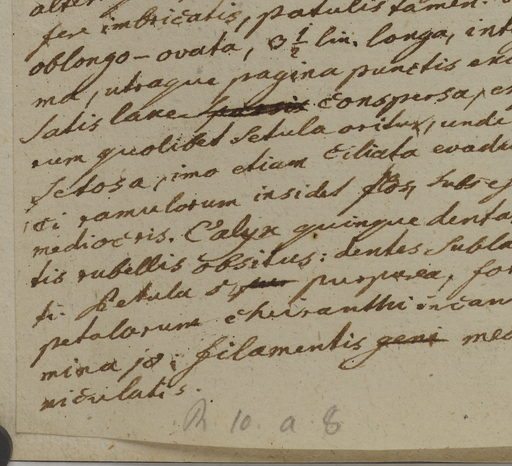 alter
fere imbricatis, patulis tamen.
oblongo-ovata, 3½ lin. longa, int
ma, utraque pagina punctis exc
satis laxe conspersa, e
rum quolibet setula oritur, unde
setosa, imo etiam ciliata evad
ti ramulorum insidet flos, subse
mediocris. Calyx quinque denta
tis rubellis obsitus: dentes subla
ti. Petala 5, purpurea, for
petalorum cheiranthi incan
mina 10; filamentis geni med
niculatis.
R 10 a 8